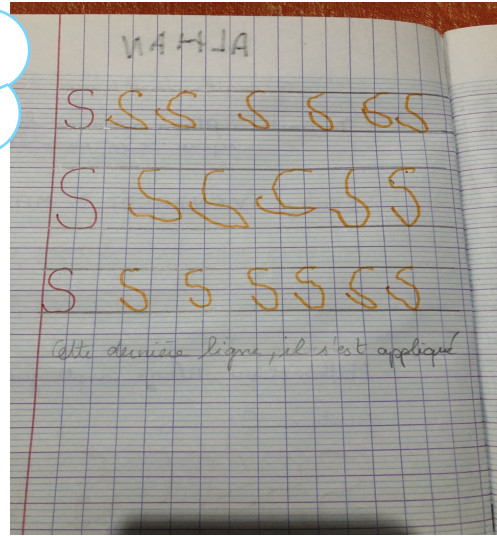 NAHLA
S S S S S S S
S S S S S S
S S S S S S S
Cette dernière ligne, il s'est appliqué